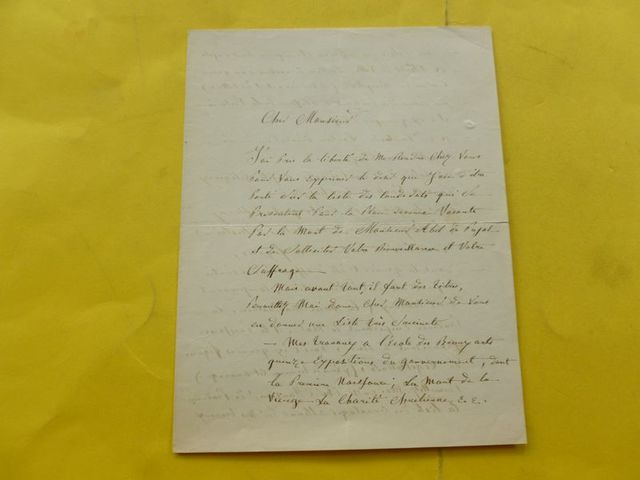 Cher Monsieur
J'ai pris la liberté de me rendre chez vous
pour vous exprimer le désir que j'ai d'être
porté sur la liste des candidats qui se
présentent pour la place devenue vacante
par la mort de Monsieur Abel de Pujol
et de solliciter votre bienveillance et votre
suffrage
Mais avant tout, il faut des titres,
permettez moi donc cher Monsieur de vous
en donner une liste très succincte
— Mes travaux à l'école des Beaux arts
quinze expositions du gouvernement, dont
la première naissance; La mort de la
Vierge La Charité chrétienne &. &.